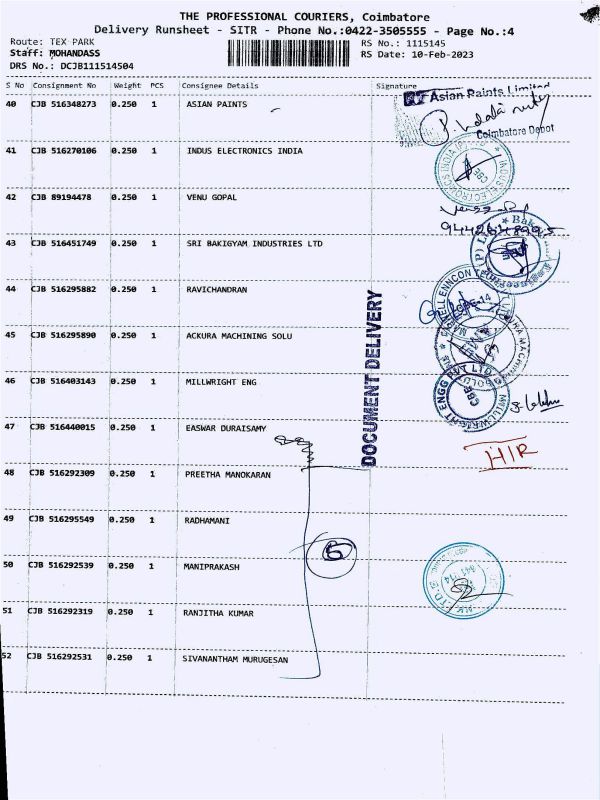 THE PROFESSIONAL COURIERS, Coimbatore
Delivery Runsheet - SITR - Phone No.:0422-3505555 - Page No.:4
Route: TEX PARK
RS No.: 1115145
Staff: MOHANDASS
RS Date: 10-Feb-2023
DRS No.: DCJB111514504
S No Consignment No Weight PCS Consignee Details Signature
40 CJB 516348273 0.250 1 ASIAN PAINTS
Asian Paints Limited
Coimbatore Depot
41 CJB 516270106 0.250 1 INDUS ELECTRONICS INDIA
INDUS ELECTRONICS INDIA (P)
CBE
42 CJB 89194478 0.250 1 VENU GOPAL
43 CJB 516451749 0.250 1 SRI BAKIGYAM INDUSTRIES LTD
44 CJB 516295882 0.250 1 RAVICHANDRAN
45 CJB 516295890 0.250 1 ACKURA MACHINING SOLU
46 CJB 516403143 0.250 1 MILLWRIGHT ENG
MILLWRIGHT ENGG PVT LTD
CBE
47 CJB 516440015 0.250 1 EASWAR DURAISAMY
DOCUMENT DELIVERY
48 CJB 516292309 0.250 1 PREETHA MANOKARAN
49 CJB 516295549 0.250 1 RADHAMANI
5
50 CJB 516292539 0.250 1 MANIPRAKASH
51 CJB 516292319 0.250 1 RANJITHA KUMAR
52 CJB 516292531 0.250 1 SIVANANTHAM MURUGESAN